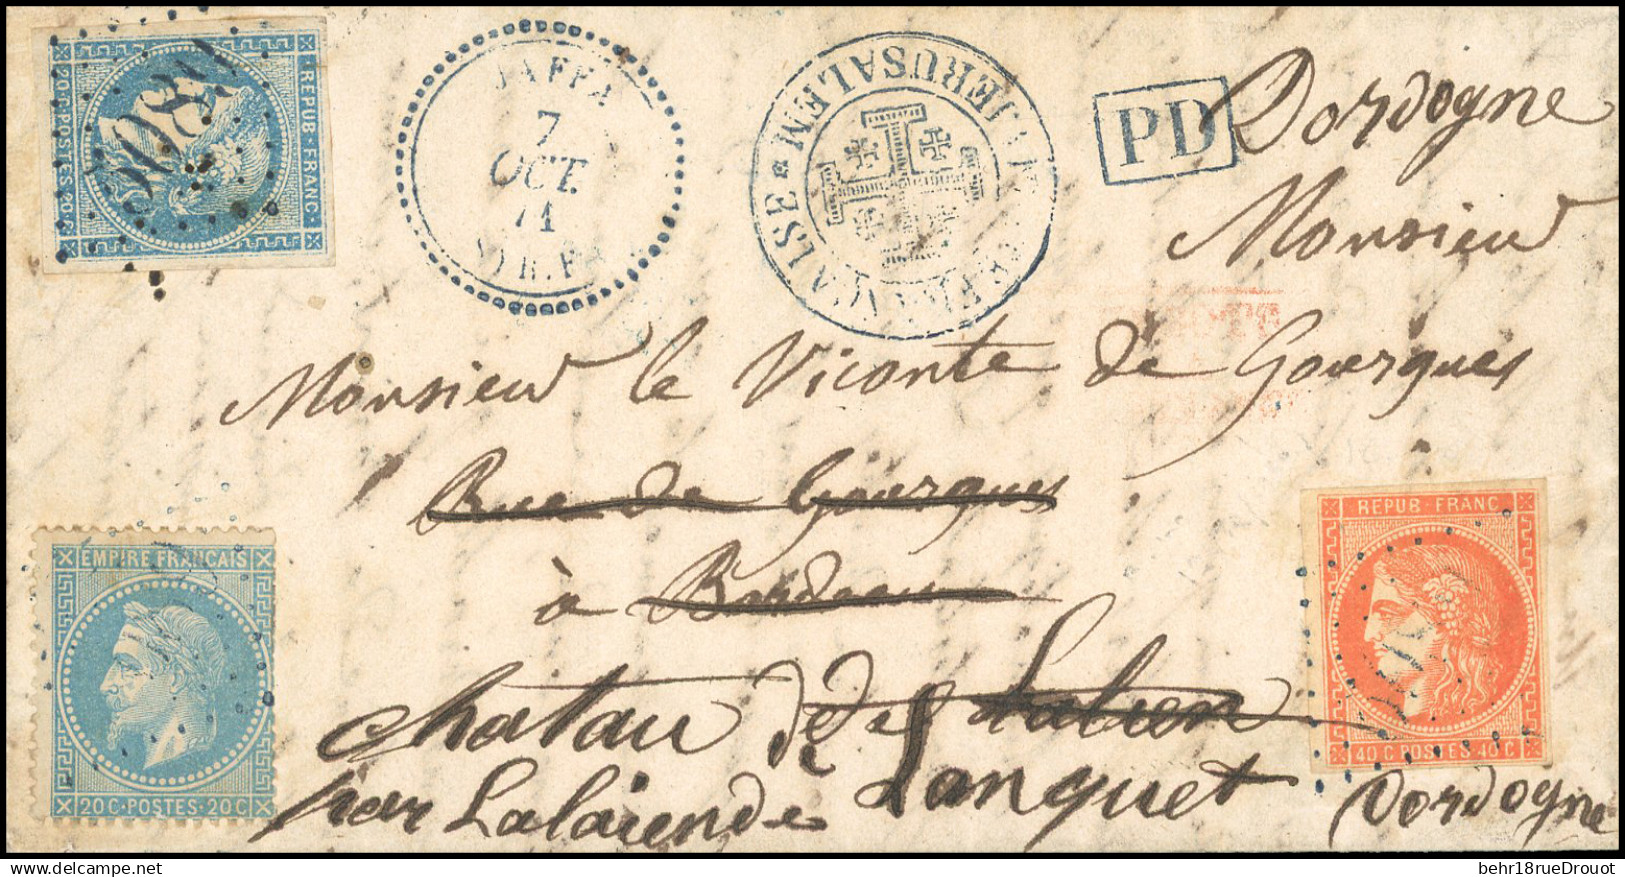 REPUB·FRANC·
20·C·POSTES·20·C·
5080
JAFFA
7
OCT.
71
SYRIE
JERUSALEM
PD
Dordogne
Monsieur
Monsieur le Viconte de Gourgues
Rue de Gourgues
à Bordeaux
chatau de de
Lanquet
par Lalainde
Dordogne
EMPIRE FRANÇAIS
20C·POSTES·20C
REPUB·FRANC·
40·C·POSTES·40·C
behr18rueDrouot